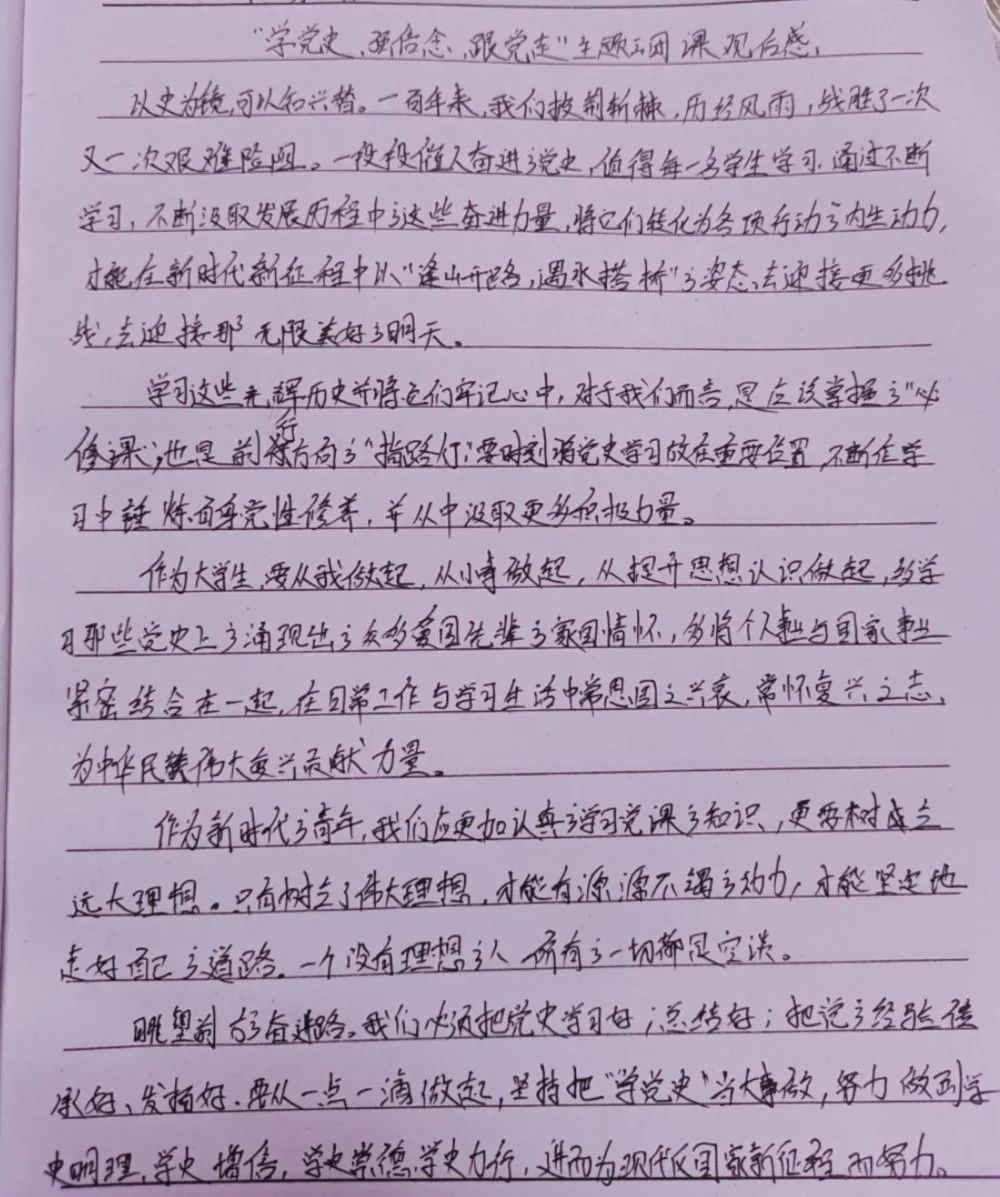 “学党史、强信念、跟党走”主题团课观后感.
以史为镜,可以知兴替。一百年来,我们披荆斩棘,历经风雨,战胜了一次
又一次艰难险阻。一段段催人奋进的党史,值得每一名学生学习.通过不断
学习,不断汲取发展历程中的这些奋进力量,将它们转化为各项行动的内生动力,
才能在新时代新征程中以“逢山开路,遇水搭桥”的姿态,去迎接更多挑
战,去迎接那无限美好的明天。
学习这些光辉历史并将它们牢记心中,对于我们而言,是应该掌握的“必
修课”,也是前行方向的“指路灯”,要时刻将党史学习放在重要位置,不断在学
习中锤炼自身党性修养,并从中汲取更多积极力量。
作为大学生,要从我做起,从小事做起,从提升思想认识做起,多学
习那些党史上的涌现出的众多爱国先辈的家国情怀,多将个人事业与国家事业
紧密结合在一起,在日常工作与学习生活中常思国之兴衰,常怀复兴之志,
为中华民族伟大复兴贡献力量。
作为新时代的青年,我们应更加认真的学习党课的知识,更要树立
远大理想。只有树立了伟大理想,才能有源源不竭的动力,才能坚定地
走好自己的道路.一个没有理想的人所有的一切都是空谈。
眺望前方的奋进路。我们必须把党史学习好;总结好;把党的经验传
承好、发扬好.要从一点一滴做起,坚持把“学党史”当大事做,努力做到学
史明理,学史增信,学史崇德,学史力行,进而为现代化国家新征程而努力。